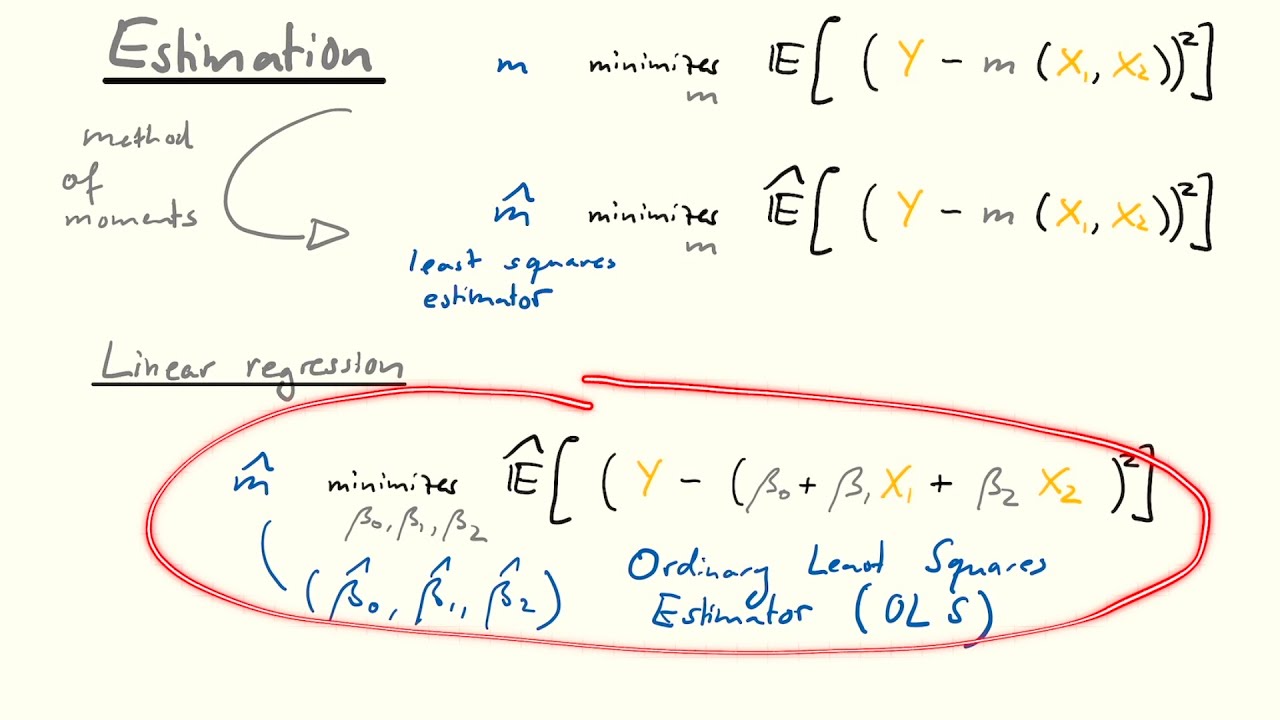 Estimation
m minimizes 𝔼[(Y - m(X₁, X₂))²]
m
method
of
moments
m̂ minimizes 𝔼̂[(Y - m(X₁, X₂))²]
m
least squares
estimator
Linear regression
m̂ minimizes 𝔼̂[(Y - (β₀ + β₁X₁ + β₂X₂)²]
β₀, β₁, β₂
(β̂₀, β̂₁, β̂₂)
Ordinary Least Squares
Estimator (OLS)